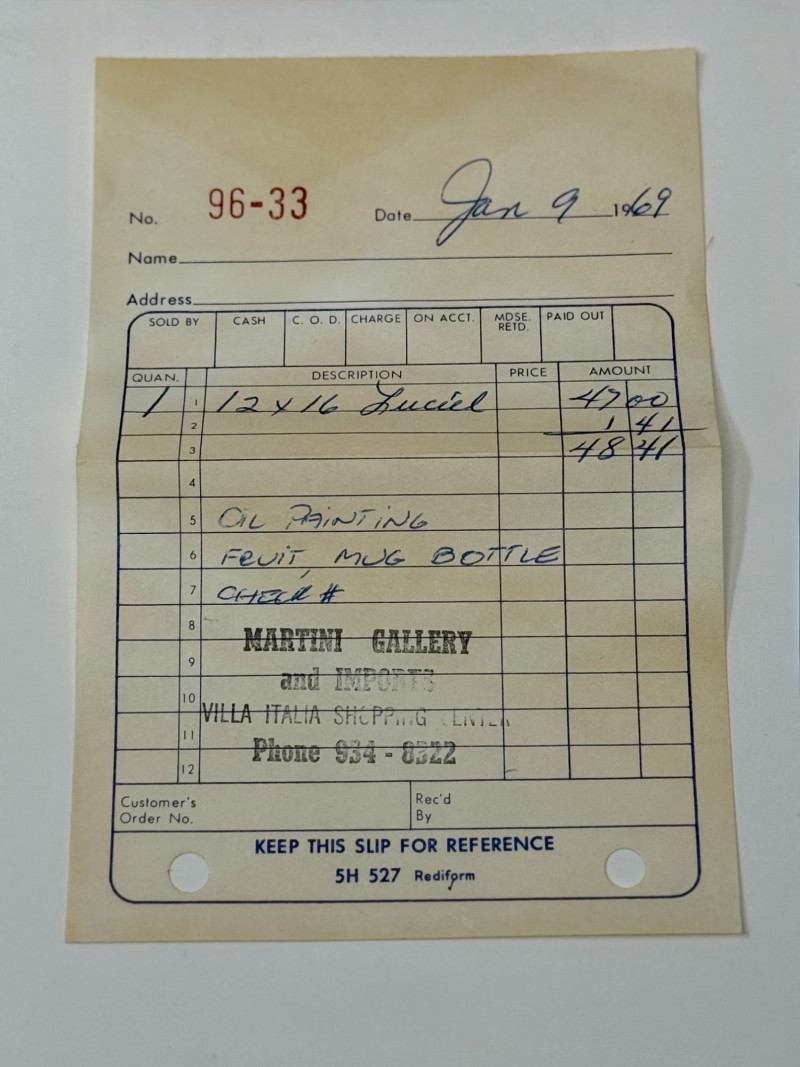 No. 96-33 Date Jan 9 1969
Name
Address
SOLD BY CASH C. O. D. CHARGE ON ACCT. MDSE. RETD. PAID OUT
QUAN. DESCRIPTION PRICE AMOUNT
1 1 12 x 16 Luciel 47 00
2 1 41
3 48 41
4
5 OIL PAINTING
6 FRUIT, MUG BOTTLE
7 CHECK #
8 MARTINI GALLERY
9 and IMPORTS
10 VILLA ITALIA SHOPPING CENTER
11 Phone 934-8322
12
Customer's Order No. Rec'd By
KEEP THIS SLIP FOR REFERENCE
5H 527 Rediform